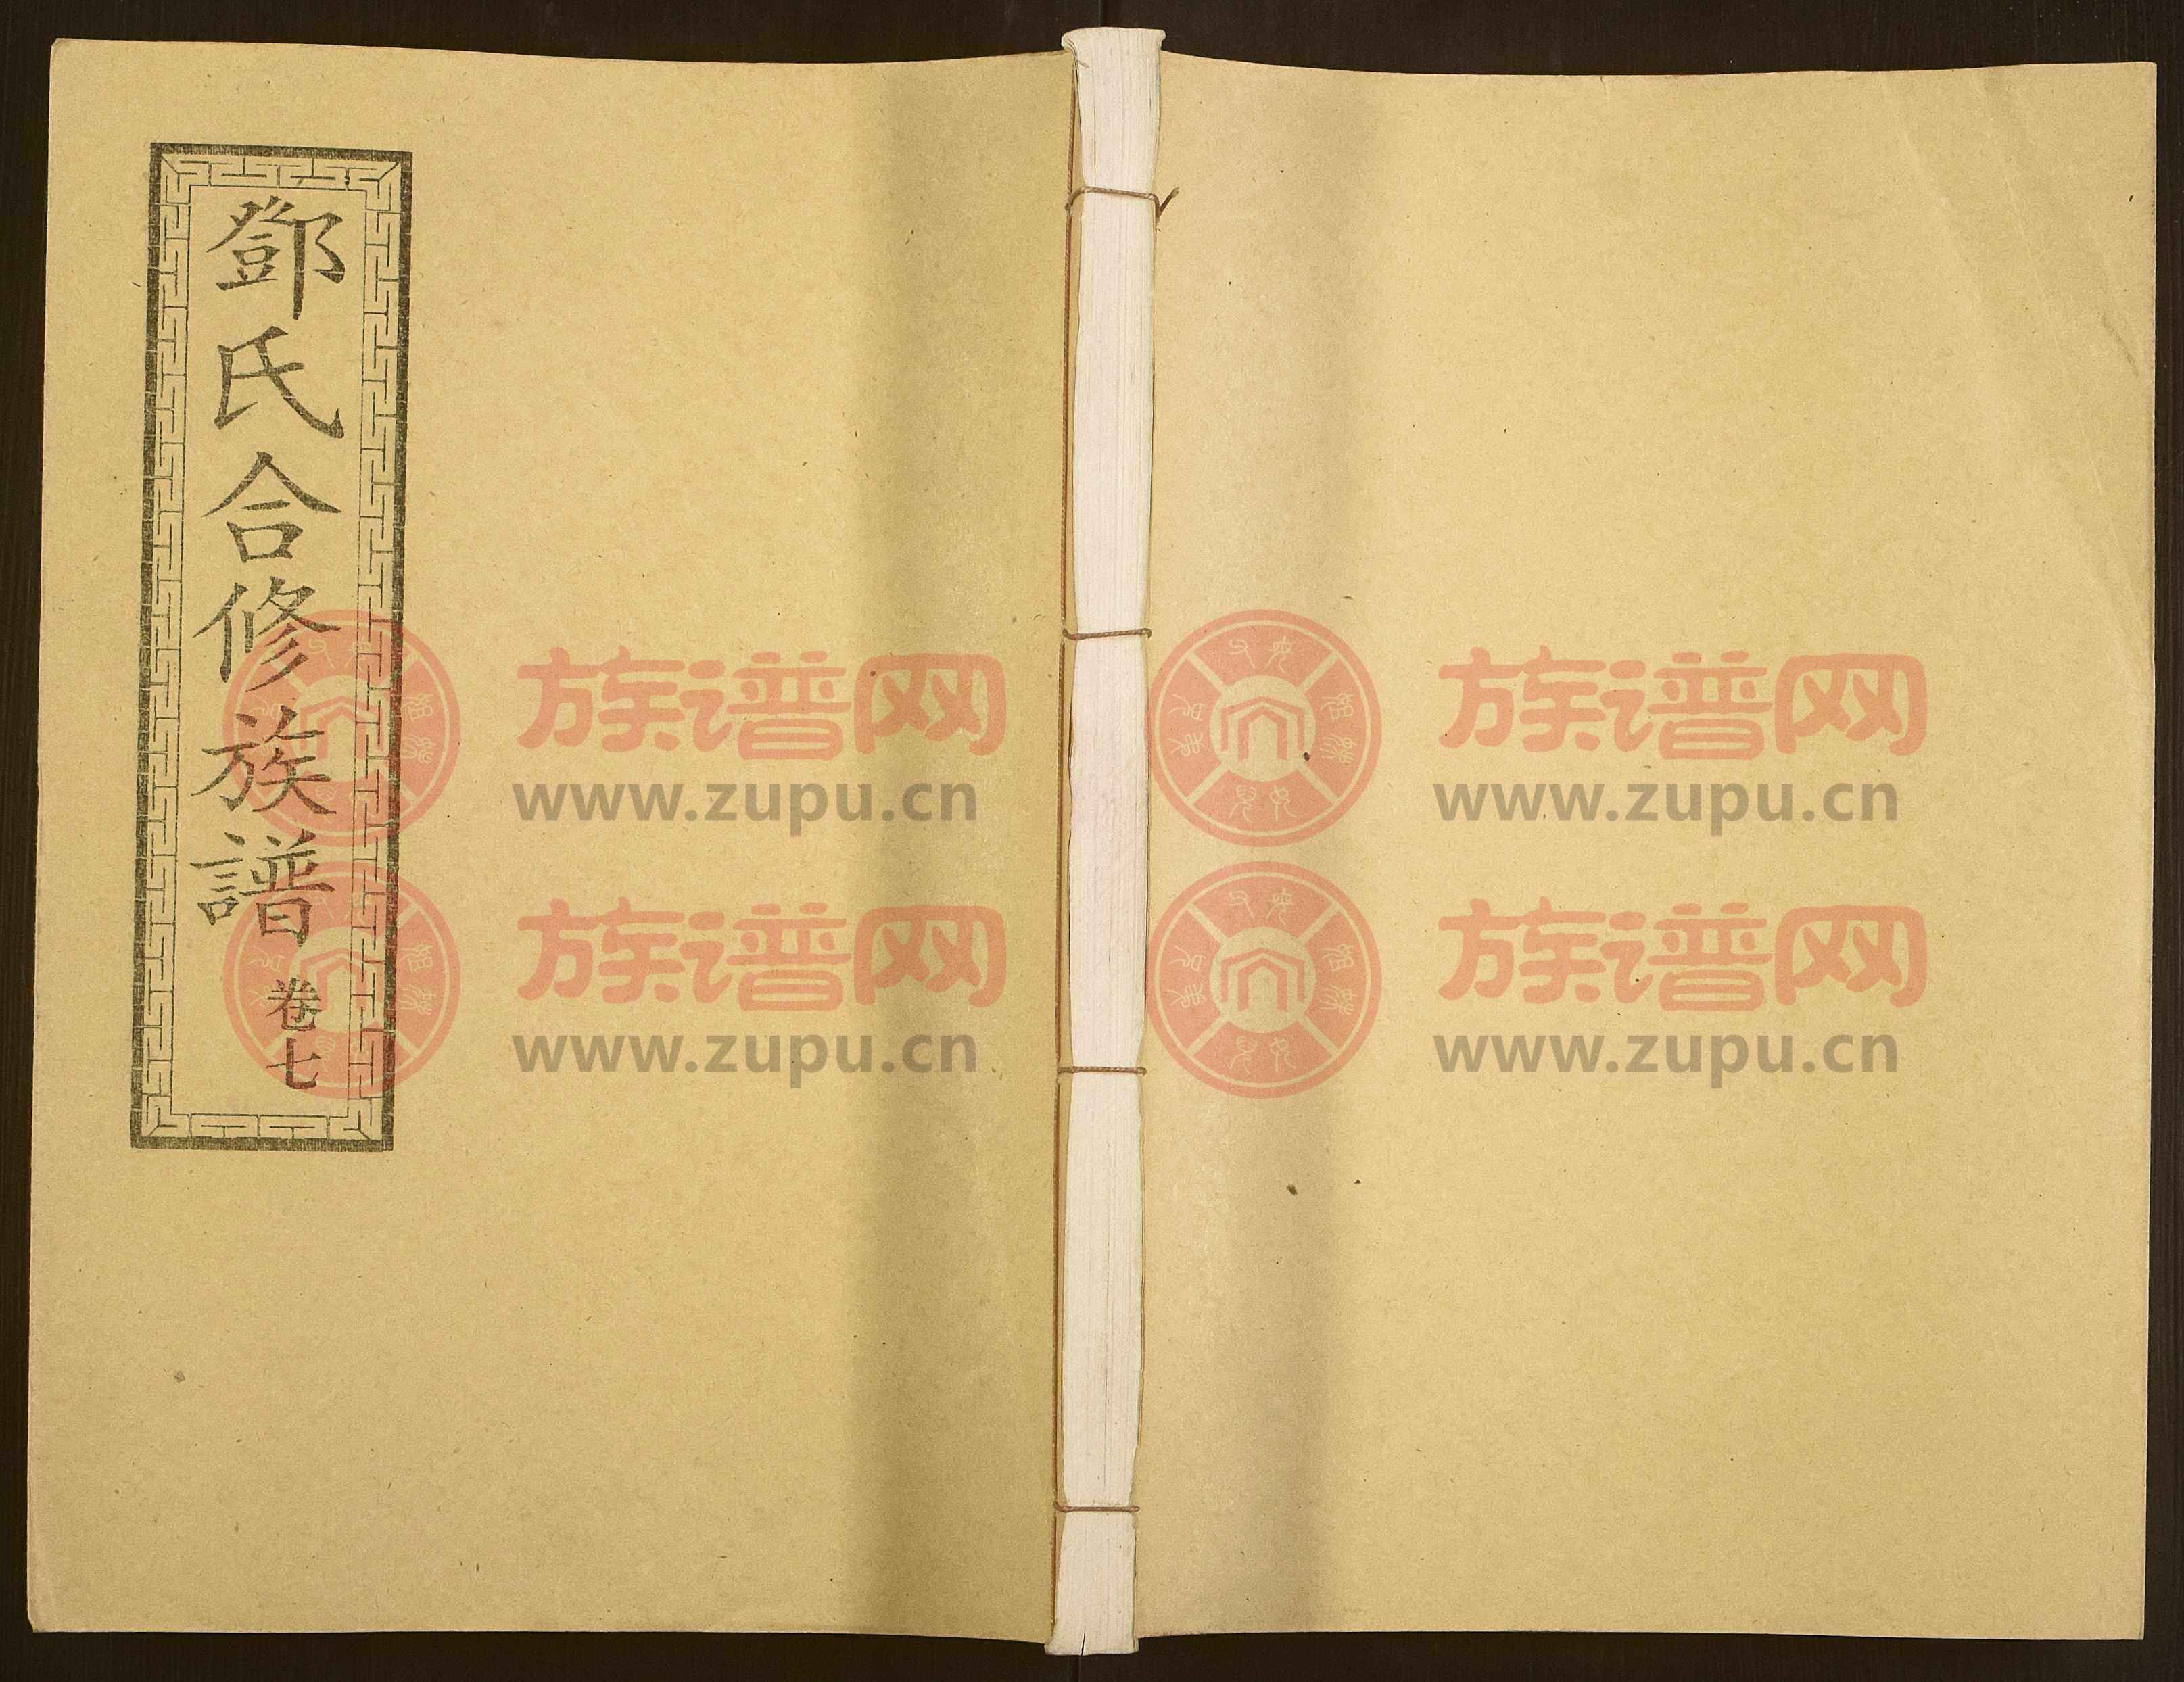 鄧氏合修族譜 卷七
族谱网
www.zupu.cn
族谱网
www.zupu.cn
族谱网
www.zupu.cn
族谱网
www.zupu.cn